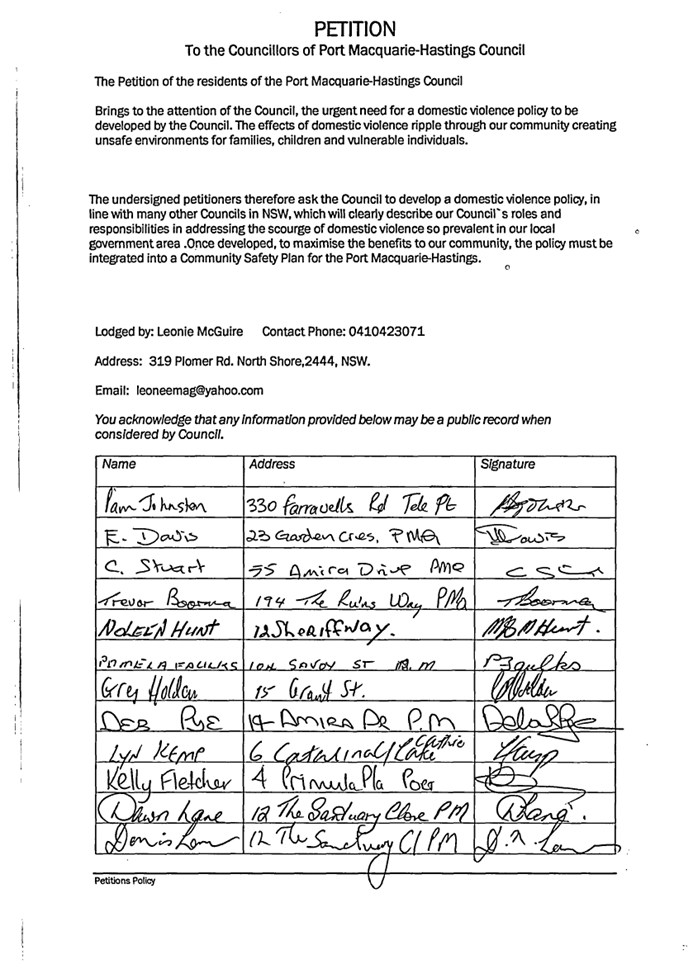 PETITION
To the Councillors of Port Macquarie-Hastings Council
The Petition of the residents of the Port Macquarie-Hastings Council
Brings to the attention of the Council, the urgent need for a domestic violence policy to be
developed by the Council. The effects of domestic violence ripple through our community creating
unsafe environments for families, children and vulnerable individuals.
The undersigned petitioners therefore ask the Council to develop a domestic violence policy, in
line with many other Councils in NSW, which will clearly describe our Council`s roles and
responsibilities in addressing the scourge of domestic violence so prevalent in our local
government area .Once developed, to maximise the benefits to our community, the policy must be
integrated into a Community Safety Plan for the Port Macquarie-Hastings.
Lodged by: Leonie McGuire Contact Phone: 0410423071
Address: 319 Plomer Rd. North Shore,2444, NSW.
Email: leoneemag@yahoo.com
You acknowledge that any information provided below may be a public record when
considered by Council.
Name Address Signature
Pam Johnston 330 Farrawells Rd Tele Pt
E. Davis 23 Garden Cres, PMQ
C. Stuart 55 Amira Drive PMQ
Trevor Boorma 194 The Ruins Way PMQ TBoorma
NOLEEN HUNT 12 SHERIFF WAY. Hunt.
PAMELA FAULKS SAVOY ST
Greg Holden 15 Grant St.
DEB PYE 14 AMIRA DR P.M
LYN KEMP 6 Catalina Cl Lake Cathie
Kelly Fletcher 4 Primula Pla
Dawn Lane 12 The Sactuary Close PM
Denis Lane 12 The Sanctuary Cl PM
Petitions Policy